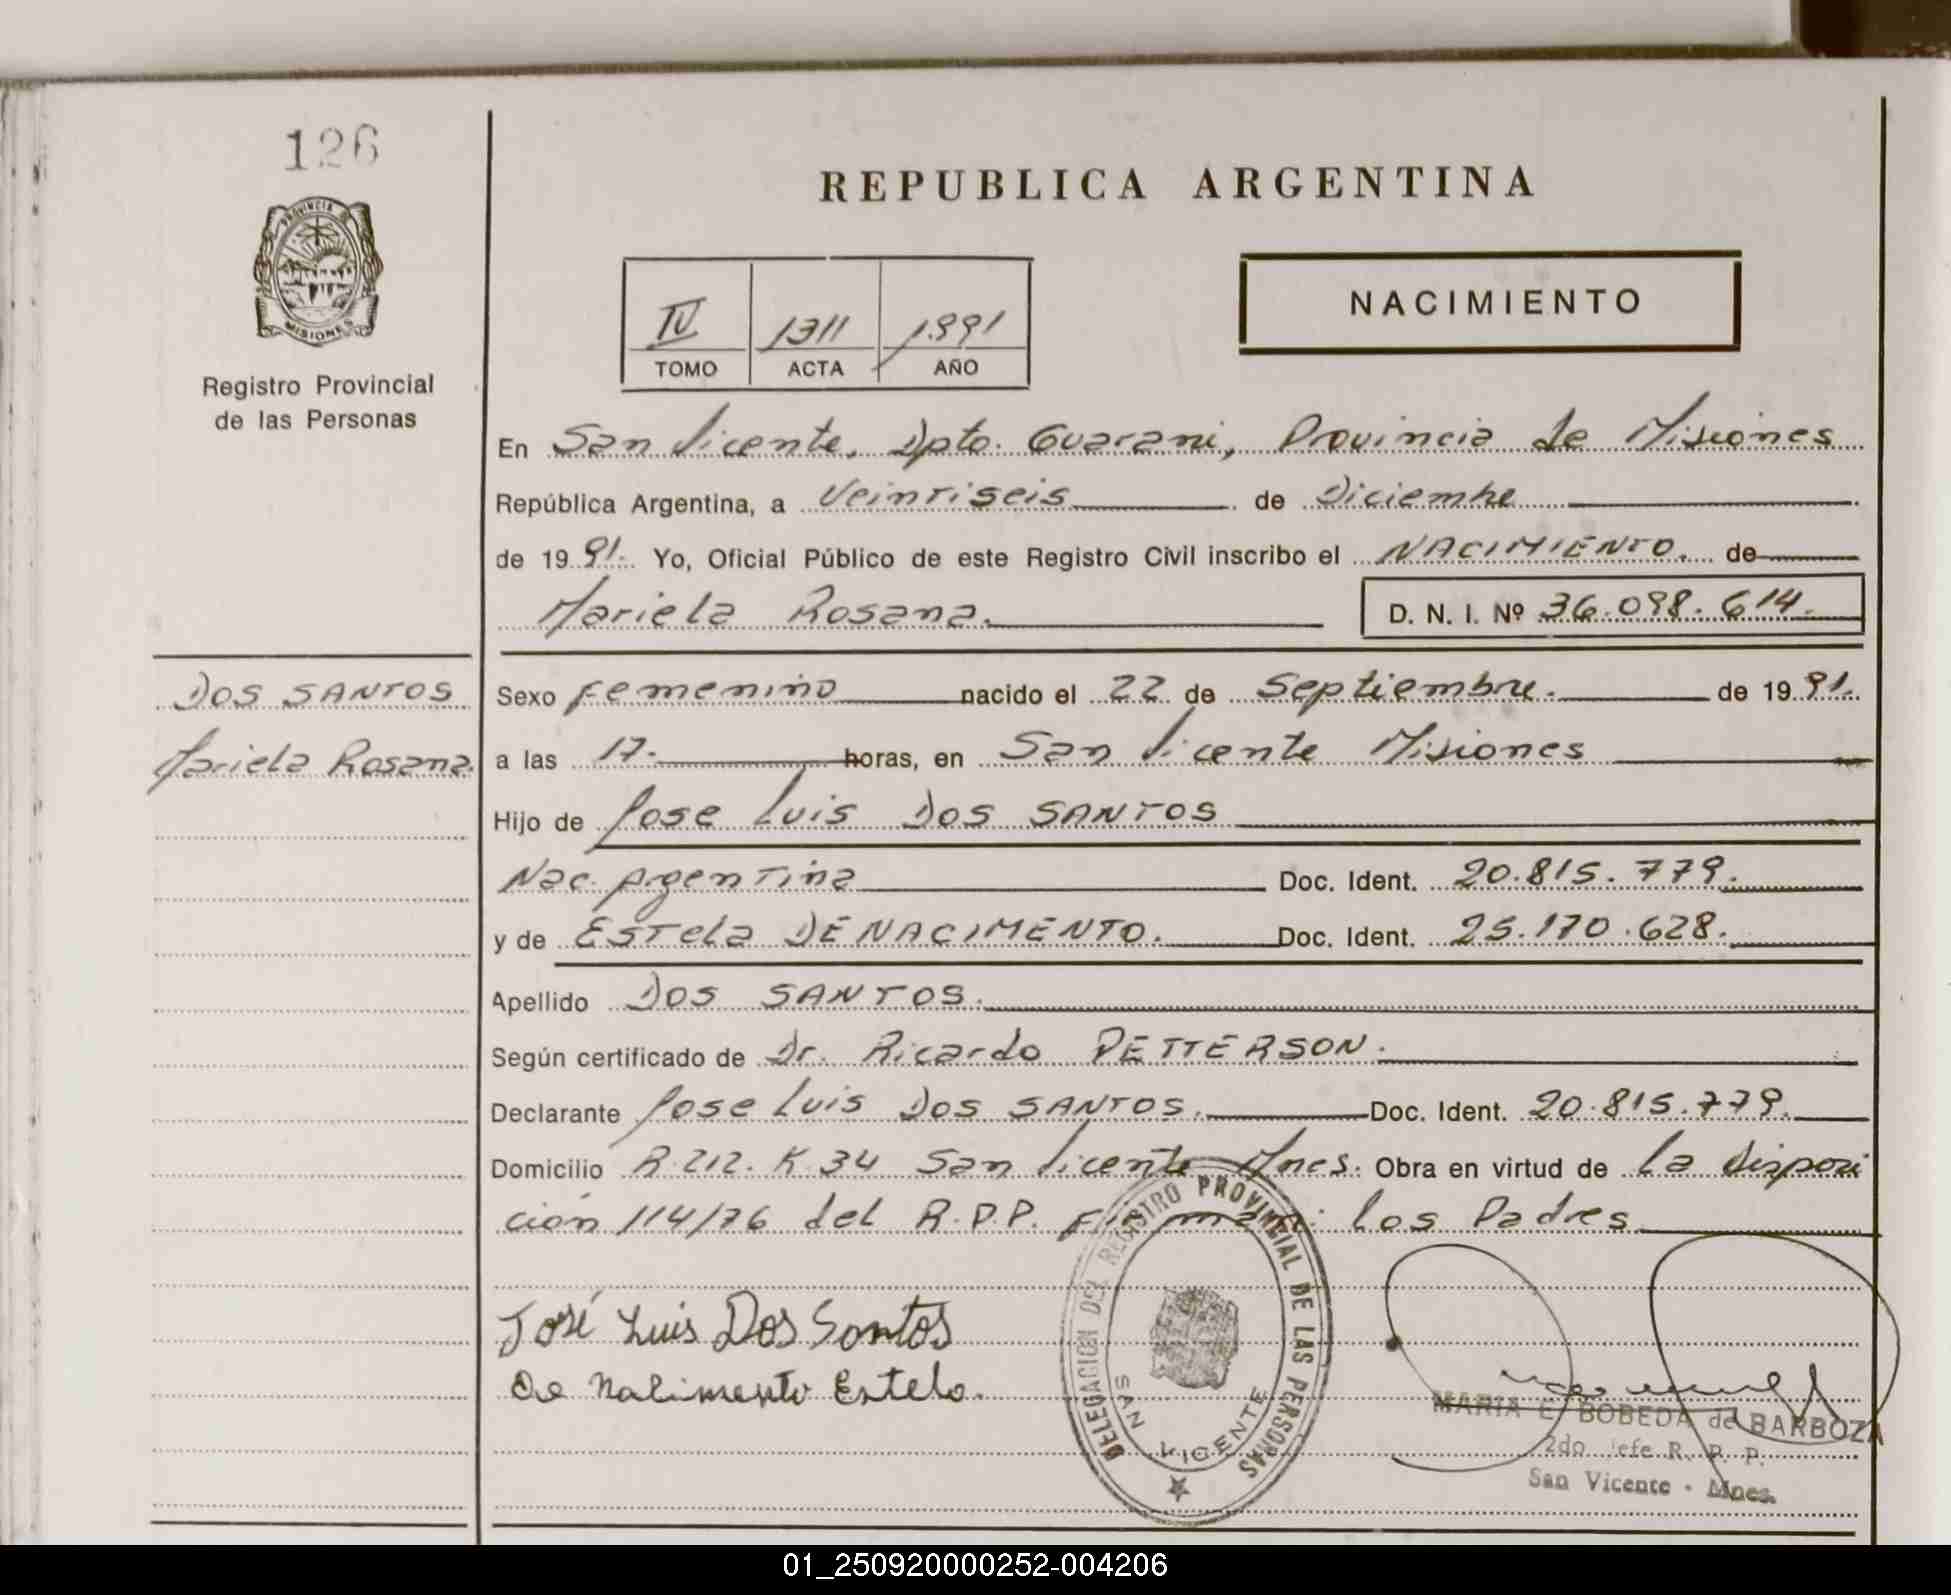 126
REPUBLICA ARGENTINA
PROVINCIA DE
MISIONES
Registro Provincial
de las Personas
IV 1311 1.991
TOMO ACTA AÑO
NACIMIENTO
En San Vicente, Dpto. Guarani, Provincia de Misiones
República Argentina, a Veintiseis de Diciembre
de 1991. Yo, Oficial Público de este Registro Civil inscribo el NACIMIENTO. de
Mariela Rosana. D. N. I. Nº 36.098.614.
DOS SANTOS
Mariela Rosana.
Sexo Femenino nacido el 22 de Septiembre. de 1991.
a las 17. horas, en San Vicente Misiones
Hijo de Jose Luis DOS SANTOS
Nac. Argentina Doc. Ident. 20.815.779.
y de Estela DE NACIMENTO. Doc. Ident. 25.170.628.
Apellido DOS SANTOS.
Según certificado de Dr. Ricardo PETTERSON.
Declarante Jose Luis DOS SANTOS. Doc. Ident. 20.815.779.
Domicilio R.212. K.34 San Vicente Mnes. Obra en virtud de la disposi
ción 114/76 del R.P.P. Firman: los Padres
José Luis Dos Santos
De Nalimento Estela.
DELEGACION DEL REGISTRO PROVINCIAL DE LAS PERSONAS
SAN VICENTE
MARIA E. BOBEDA de BARBOZA
2do Jefe R. P. P.
San Vicente - Mnes.
01_250920000252-004206